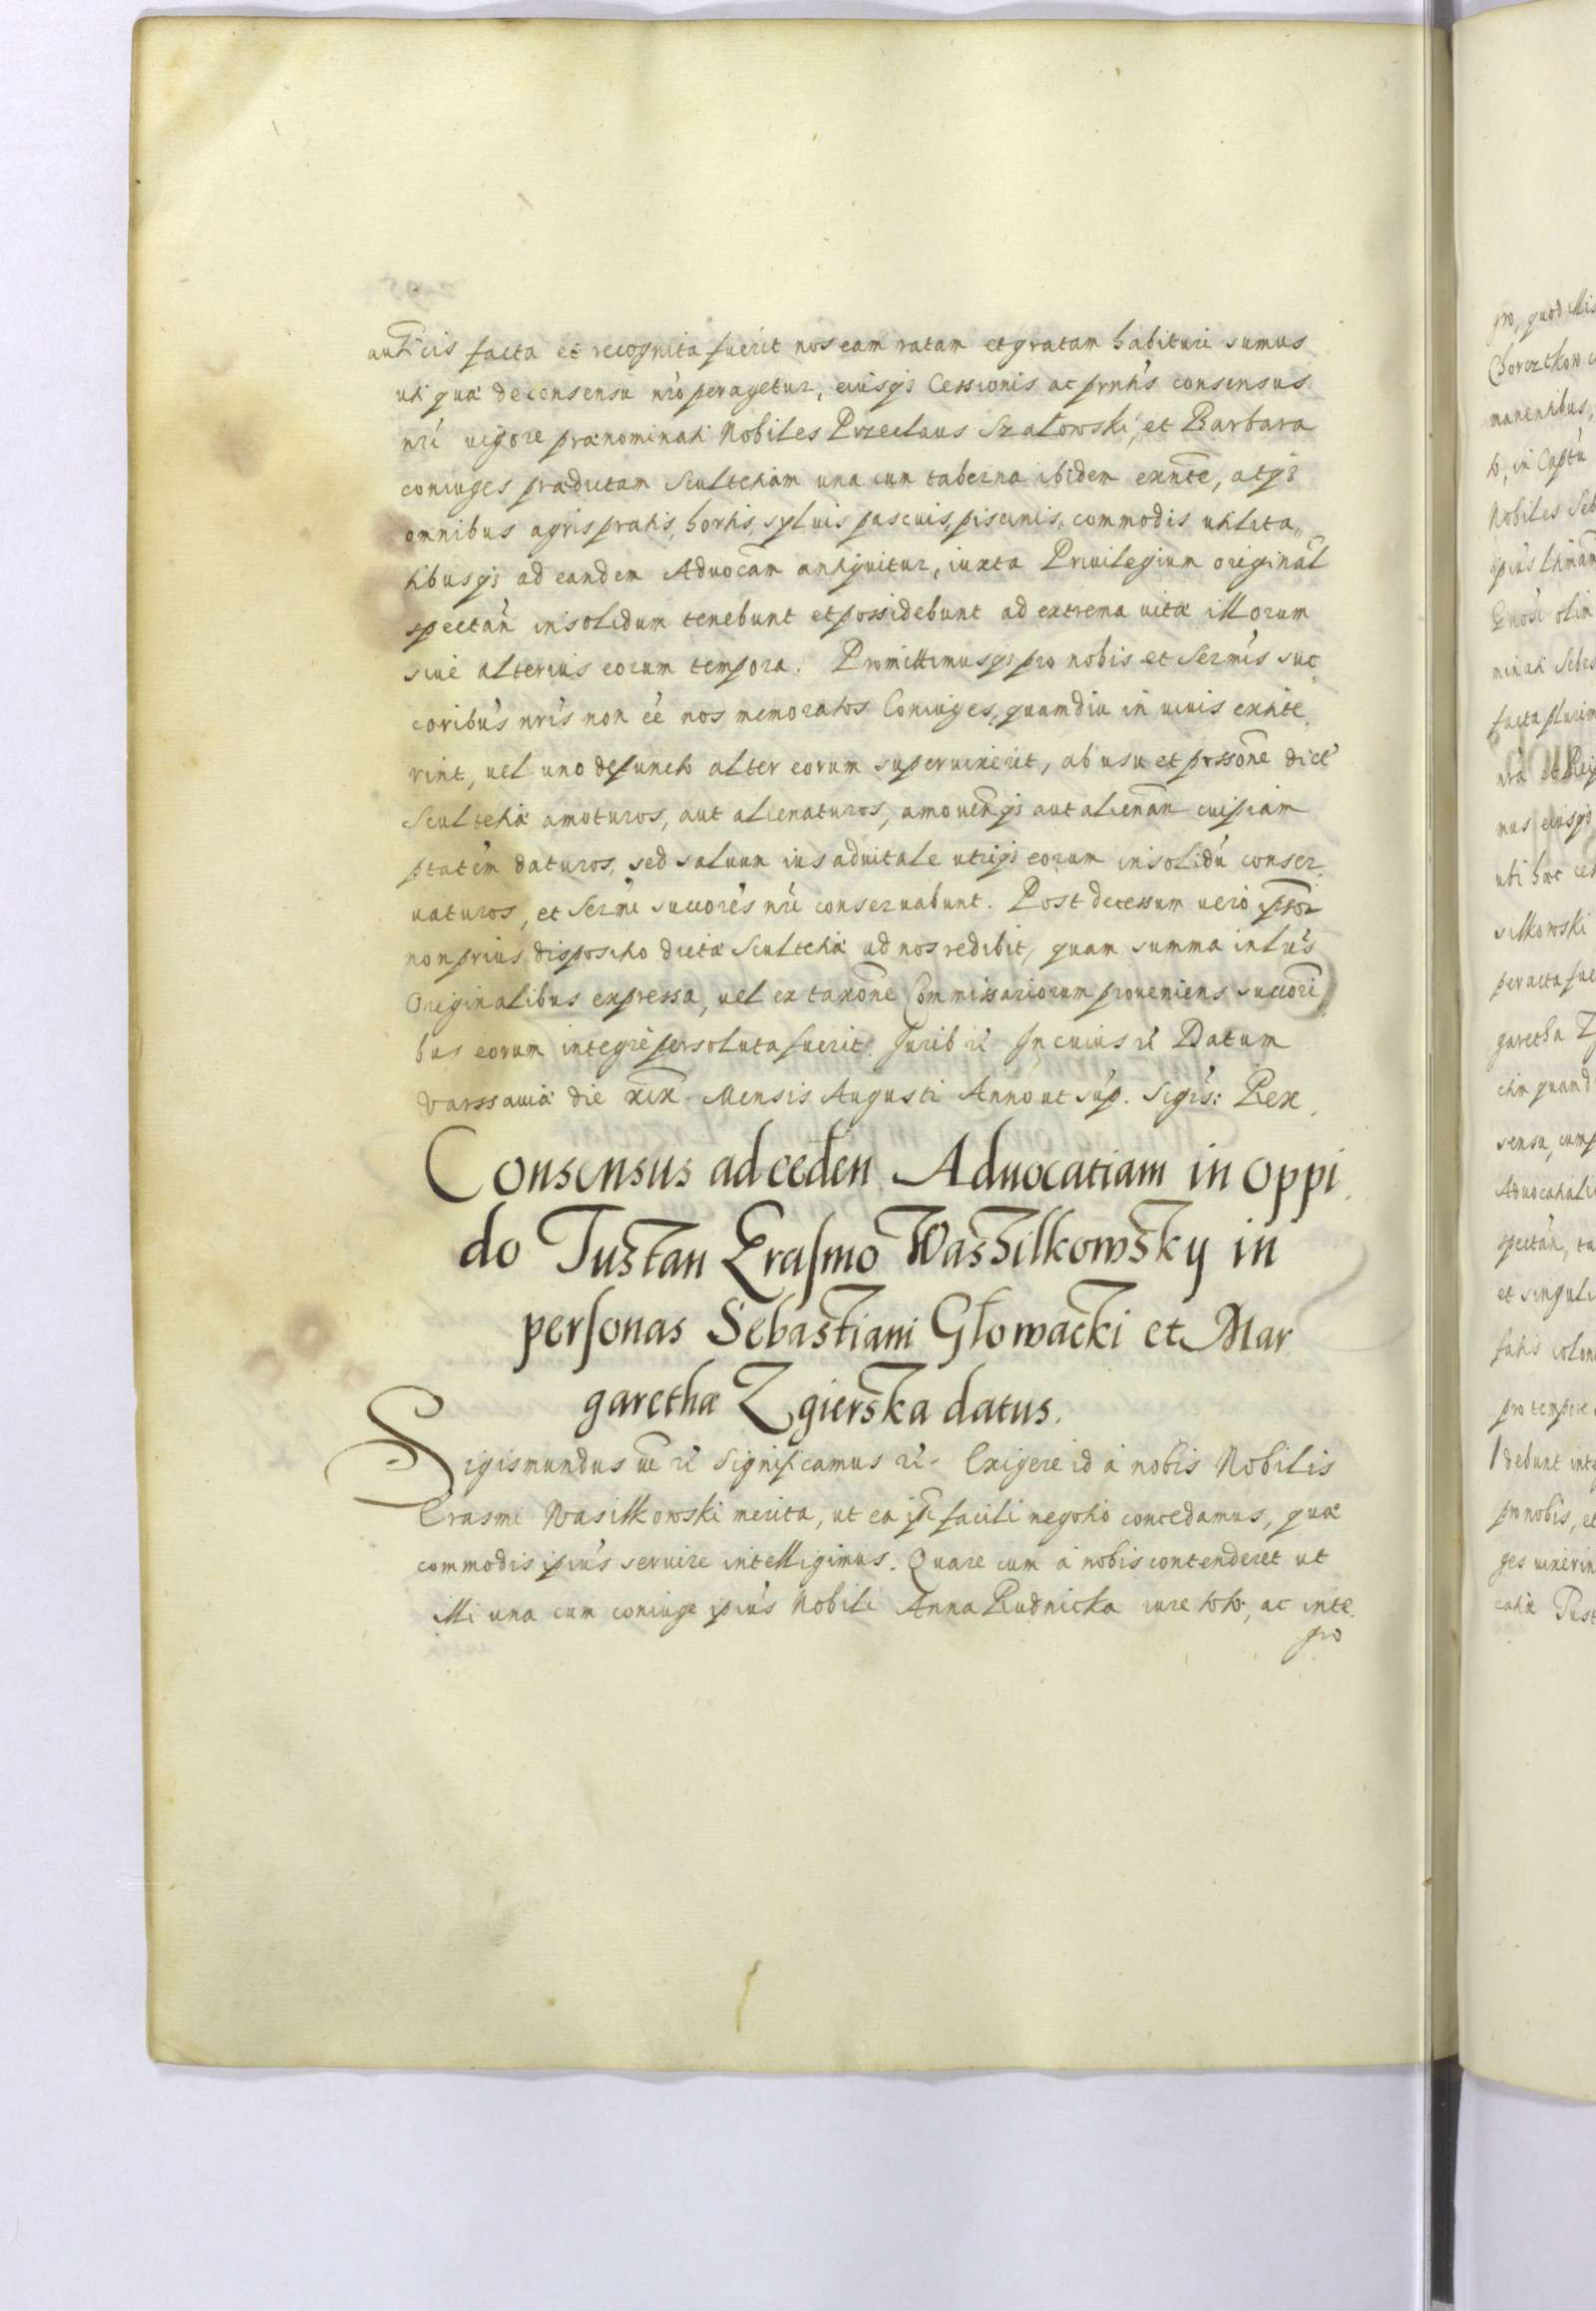 auth̃cis facta et recognita fuerit nos eam ratam et gratam habituri sumus
uti quæ de consensu nr̃o peragetur, eiusq; Cessionis ac pr̃ntis consensus
nr̃i vigore prænominati Nobiles Przeclaus Szałowski, et Barbara
coniuges prædictam Scultetiam una cum taberna ibidem exñte, atq;
omnibus agris pratis, hortis, syluis pascuis, piscinis, commodis utilita„
tibusq; ad eandem Aduocãm antiquitur, iuxta Priuilegium originãl
spectañ insolidum tenebunt et possidebunt ad extrema vitæ illorum
siue alterius eorum tempora. Promittimusq; pro nobis et Sermis suc
coribus nr̃is non ẽe nos memoratos Coniuges, quamdiu in viuis extite,
rint, vel uno defuncto alter eorum superuixerit, ab usu et possõne dict
Scultetiæ amoturos, aut alienaturos, amouenq; aut alienañ cuipiam
ptatẽm daturos, sed saluum ius aduitale utriq; eorum insolidũ conser,
uaturos, et Sermi succores nr̃i conseruabunt. Post decessum vero ipsor
non prius dispositio dictæ Scultetiæ ad nos redibit, quam summa in lr̃is
Originalibus expressa, vel ex taxõne Commissariorum proueniens succori,
bus eorum integre persoluta fuerit. Jurib rẽ In cuius rẽ Datum
Varssauiæ die xix Mensis Augusti Anno ut sup. Sigis: Rex.
Consensus ad ceden Aduocatiam in oppi,
do Tusztan Erasmo Wassilkowsky in
personas Sebastiani Głowacki et Mar
garethæ Zgierska datus.
Sigismundus iii rẽ Significamus rẽ. Exigere id a nobis Nobilis
Erasmi Wasilkowski merita, ut ea ip̃i facili negotio concedamus, quæ
commodis ipius seruire intelligimus. Quare cum a nobis contenderet ut
illi una cum coniuge ipius Nobili Anna Rudnicka iure toto, ac inte
gro
gro, quod
manentibus,
Nobiles Seb
olim
facta plurim
silkowski
peracta fue
garetha Z
et singuli
pro tempore
debunt
pro nobis, et